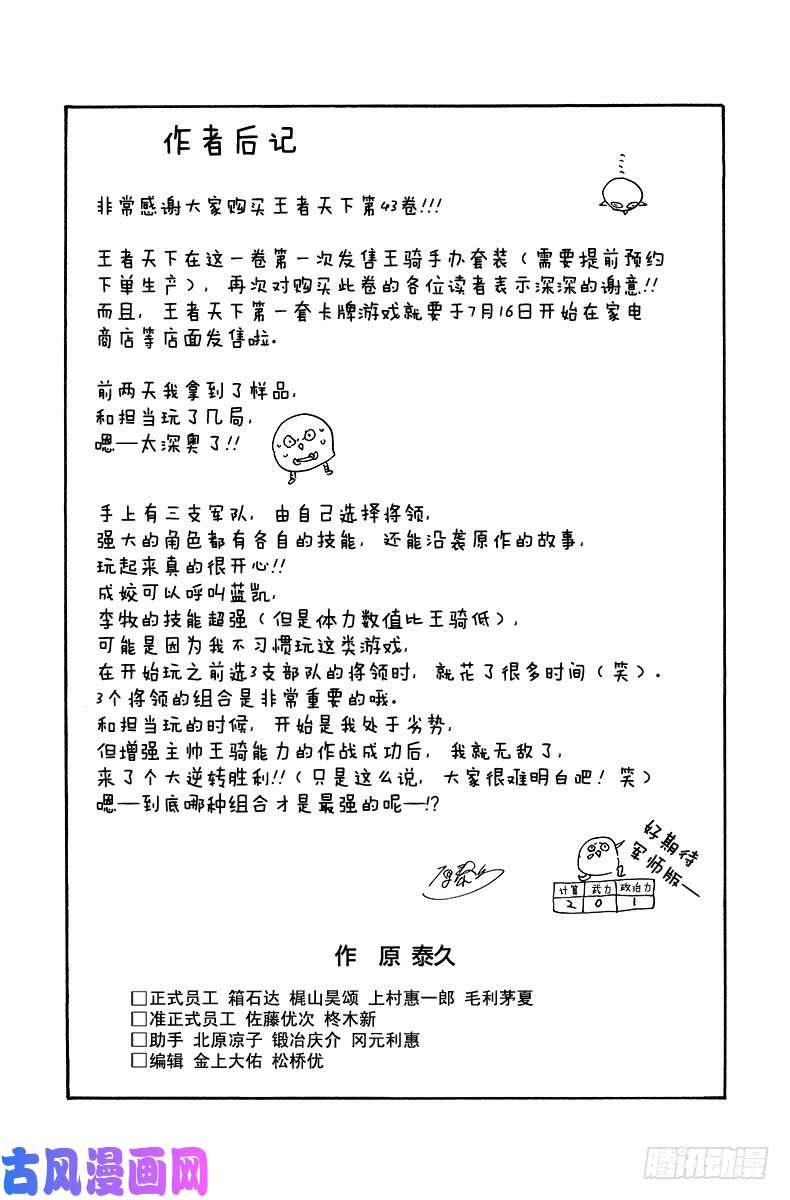 作者后记
非常感谢大家购买王者天下第43卷!!!
王者天下在这一卷第一次发售王骑手办套装(需要提前预约
下单生产),再次对购买此卷的各位读者表示深深的谢意!!
而且,王者天下第一套卡牌游戏就要于7月16日开始在家电
商店等店面发售啦.
前两天我拿到了样品,
和担当玩了几局,
嗯—太深奥了!!
手上有三支军队,由自己选择将领,
强大的角色都有各自的技能,还能沿袭原作的故事,
玩起来真的很开心!!
成姣可以呼叫蓝凯,
李牧的技能超强(但是体力数值比王骑低),
可能是因为我不习惯玩这类游戏,
在开始玩之前选3支部队的将领时,就花了很多时间(笑).
3个将领的组合是非常重要的哦.
和担当玩的时候,开始是我处于劣势,
但增强主帅王骑能力的作战成功后,我就无敌了,
来了个大逆转胜利!!(只是这么说,大家很难明白吧!笑)
嗯—到底哪种组合才是最强的呢—!?
好期待
军师版—
计算 武力 政治力
2 0 1
原泰久
作 原 泰久
□正式员工 箱石达 梶山昊颂 上村惠一郎 毛利茅夏
□准正式员工 佐藤优次 柊木新
□助手 北原凉子 锻冶庆介 冈元利惠
□编辑 金上大佑 松桥优
古风漫画网
腾讯动漫